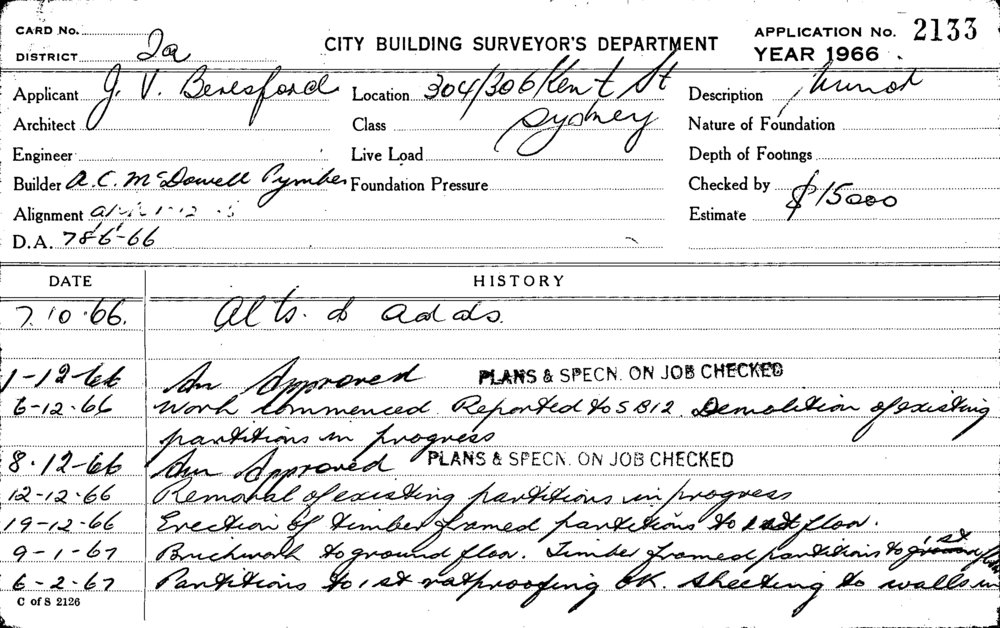 CARD No.
APPLICATION No. 2133
DISTRICT 2a
CITY BUILDING SURVEYOR'S DEPARTMENT
YEAR 1966
Applicant J. V. Beresford
Location 304/306 Kent St
Description
Architect
Class Sydney
Nature of Foundation
Engineer
Live Load
Depth of Footings
Builder A. C. McDowell Pymble
Foundation Pressure
Checked by
Alignment
Estimate $15000
D.A. 786-66
DATE HISTORY
7.10.66. Alts. & adds.
1-12-66 Approved PLANS & SPECN. ON JOB CHECKED
6-12-66 Work commenced. Reported to SB12. Demolition of existing
partitions in progress
8.12-66 Approved PLANS & SPECN. ON JOB CHECKED
12-12-66 Removal of existing partitions in progress
19-12-66 Erection of timber framed partitions to 1st floor.
9-1-67 Brickwork to ground floor. Timber framed partitions to 1st
6-2-67 Partitions to 1st ratproofing OK. Sheeting to walls in
C of S 2126